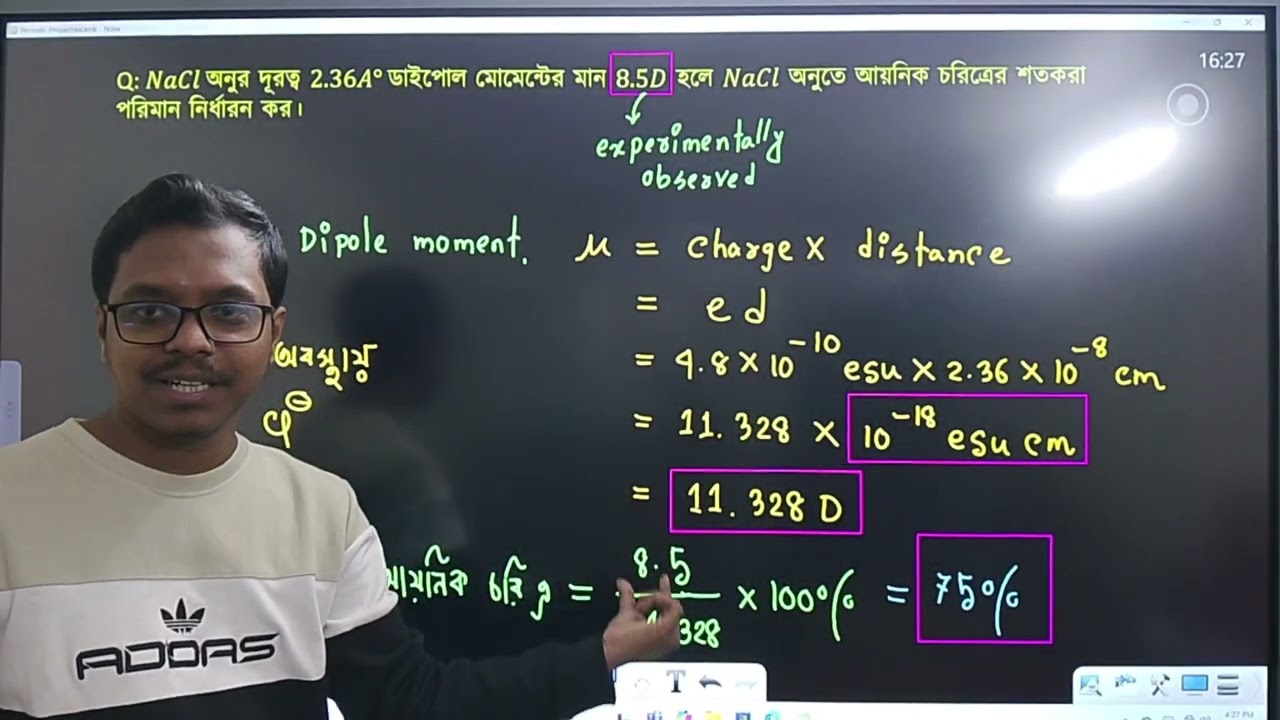 Periodic Properties.enb - Note
16:27
Q: NaCl অনুর দূরত্ব 2.36A° ডাইপোল মোমেন্টের মান 8.5D হলে NaCl অনুতে আয়নিক চরিত্রের শতকরা
পরিমান নির্ধারন কর।
experimentally
observed
Dipole moment, μ = charge × distance
= e d
অবস্থায় = 4.8 × 10⁻¹⁰ esu × 2.36 × 10⁻⁸ cm
= 11.328 × 10⁻¹⁸ esu cm
= 11.328 D
চরিত্র = 8.5 / 328 × 100% = 75%
ADDAS
4:27 PM